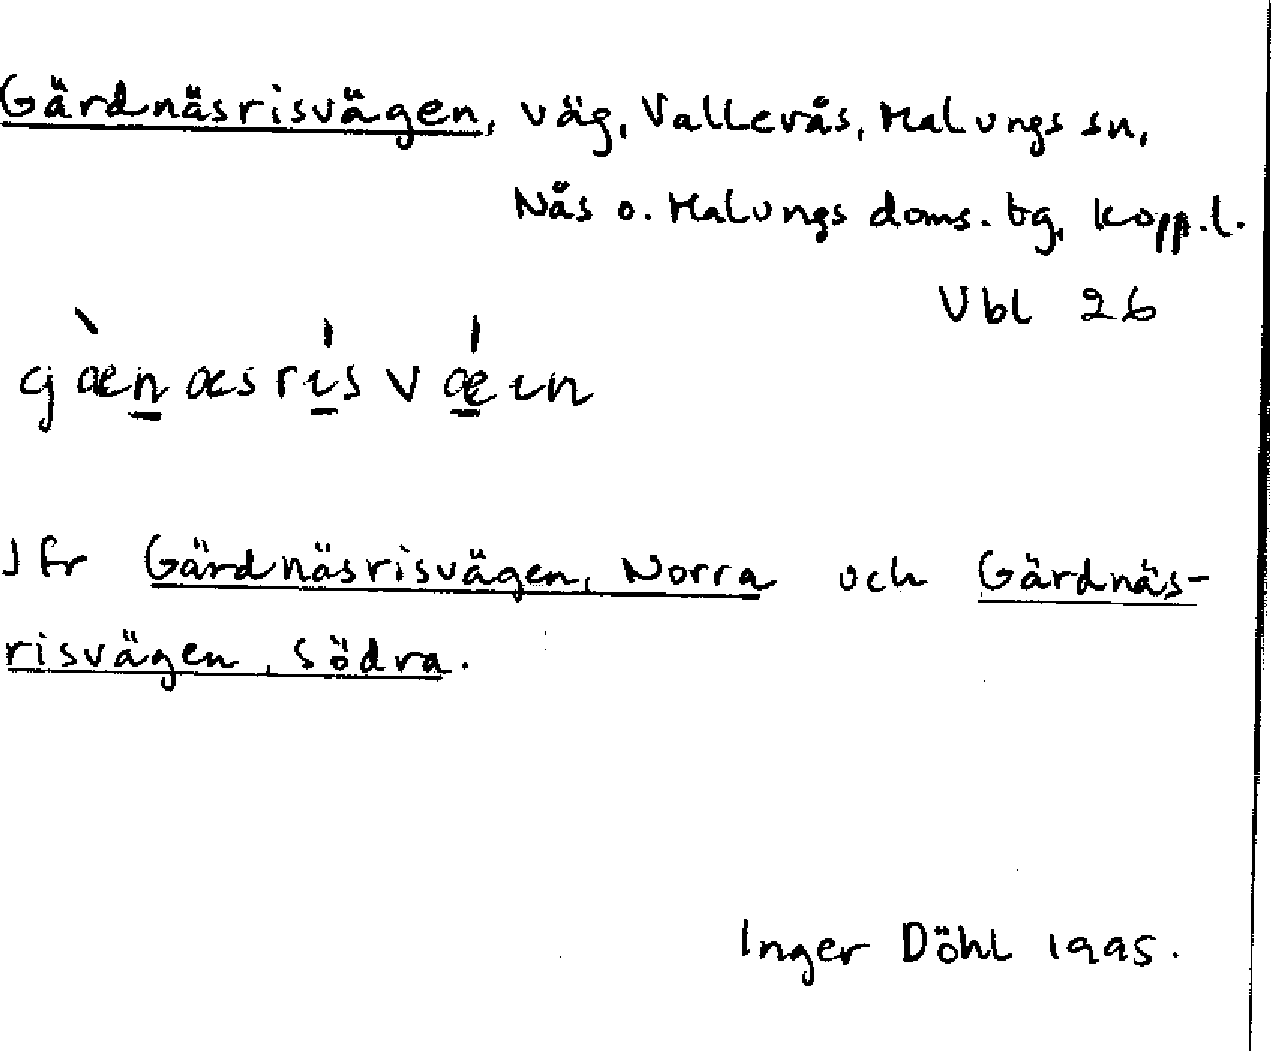 Gärdnäsrisvägen, väg, Vallerås, Malungs sn,
Nås o. Malungs doms. tg, Kopp.l.
Vbl 26
gæ̀n̲æsrı̲́svǽ̲ın
Jfr Gärdnäsrisvägen, Norra och Gärdnäs-
risvägen, Södra.
Inger Döhl 1995.